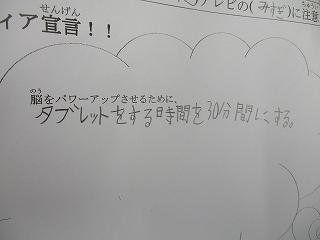 テレビの(みすぎ)に注意
ちゅうい
せんげん
ィア宣言！！
のう
脳をパワーアップさせるために、
タブレットをする時間を30分間にする。